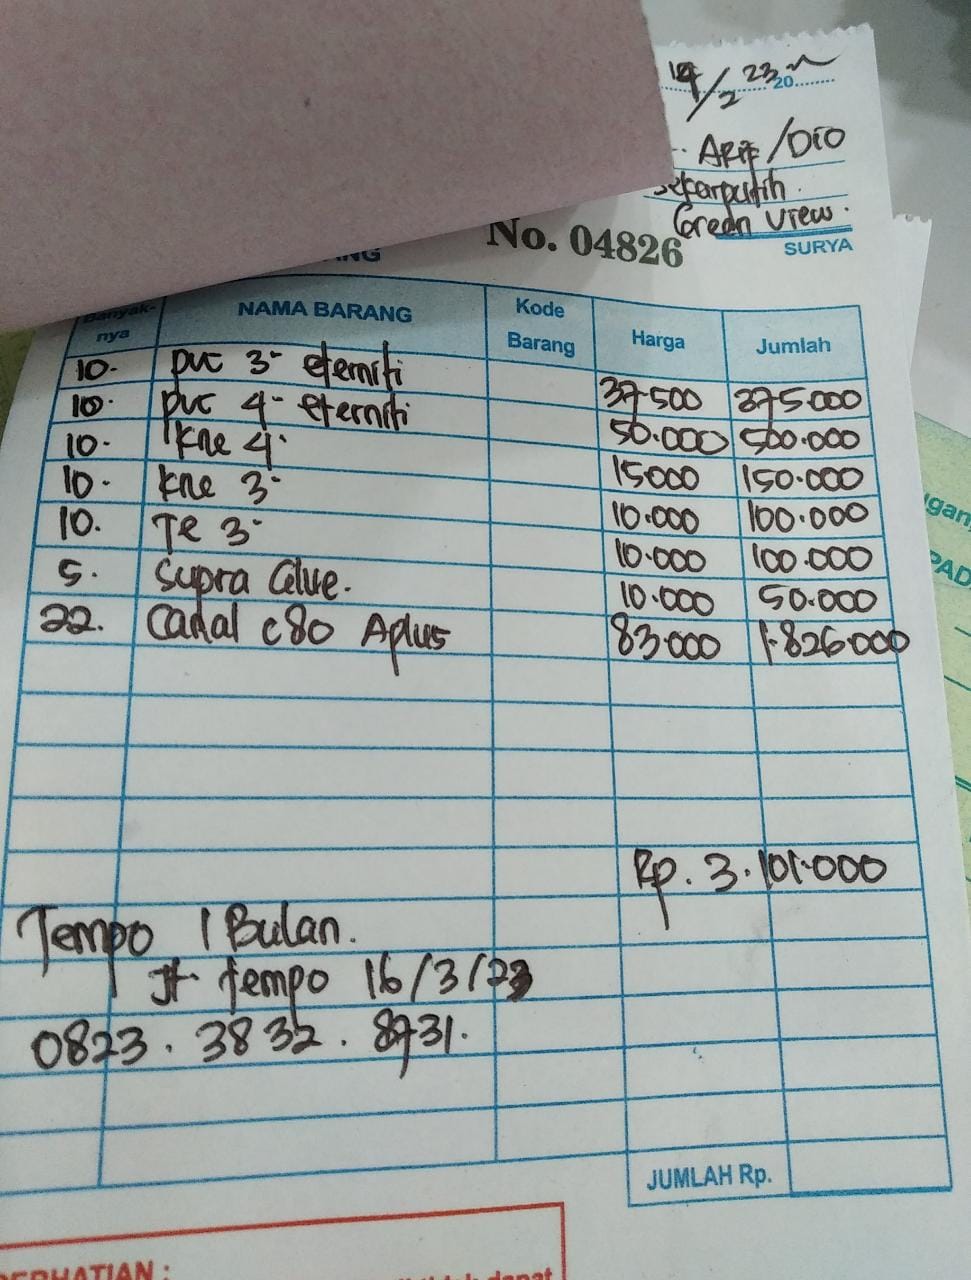 /2 23 20........
ARif /DiO
Sekarputih
Green View.
No. 04826
SURYA
Banyak-nya NAMA BARANG Kode Barang Harga Jumlah
10. pvc 3" eterniti 37.500 375.000
10. pvc 4" eterniti 50.000 500.000
10. kne 4" 15000 150.000
10. kne 3" 10.000 100.000
10. Te 3" 10.000 100.000
5. Supra Glue. 10.000 50.000
22. Canal c80 Aplus 83.000 1.826.000
Rp. 3.101.000
Tempo 1 Bulan.
Jt tempo 16/3/23
0823. 3832. 8731.
JUMLAH Rp.